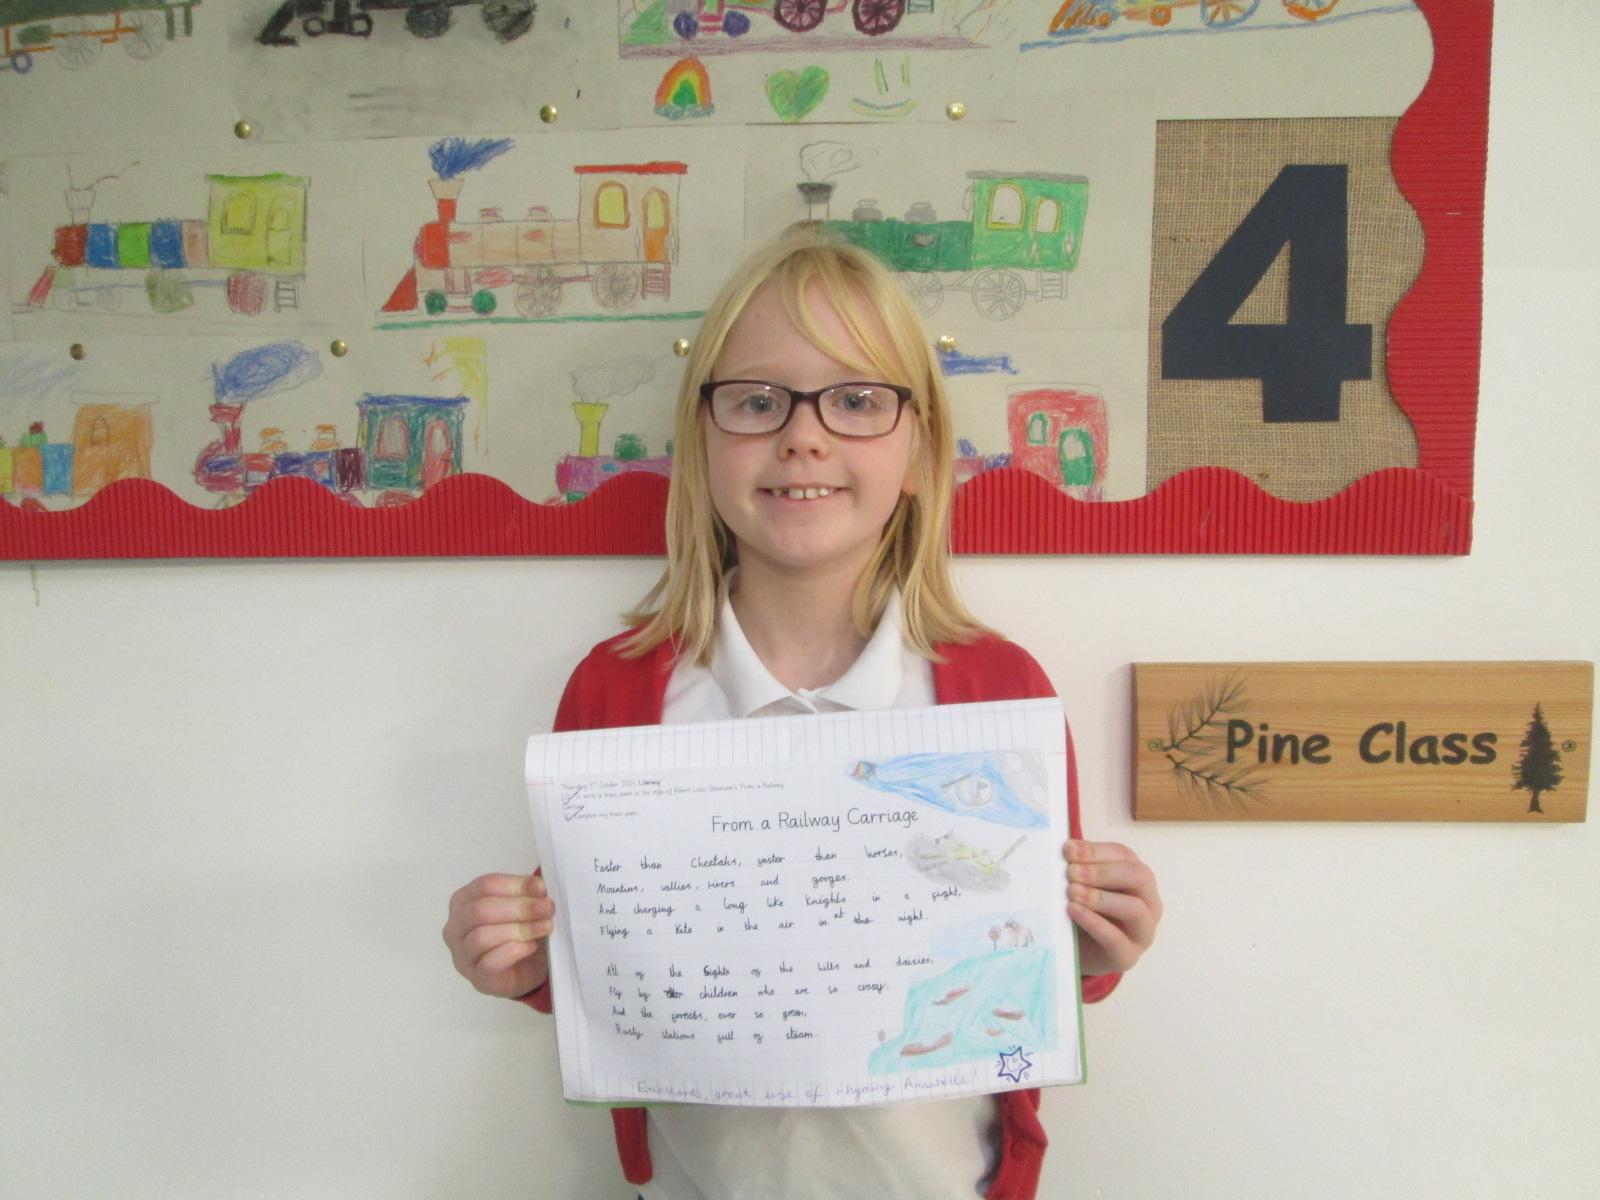 4
Pine Class
Thursday 3rd October 2024 Literacy
LO: to write a train poem in the style of Robert Louis Stevenson's 'From a Railway
Carriage'
complete my train poem
From a Railway Carriage
Faster than Cheetahs, faster than horses,
Mountins, vallies, rivers and gorges.
And charging a long like Knights in a fight,
Flying a kite in the air in nt the night.
All of the Sights of the hills and daisies,
Fly by children who are so crazy.
And the forests, ever so green,
Rusty stations full of steam.
Excellent, great use of rhyming Annabelle!